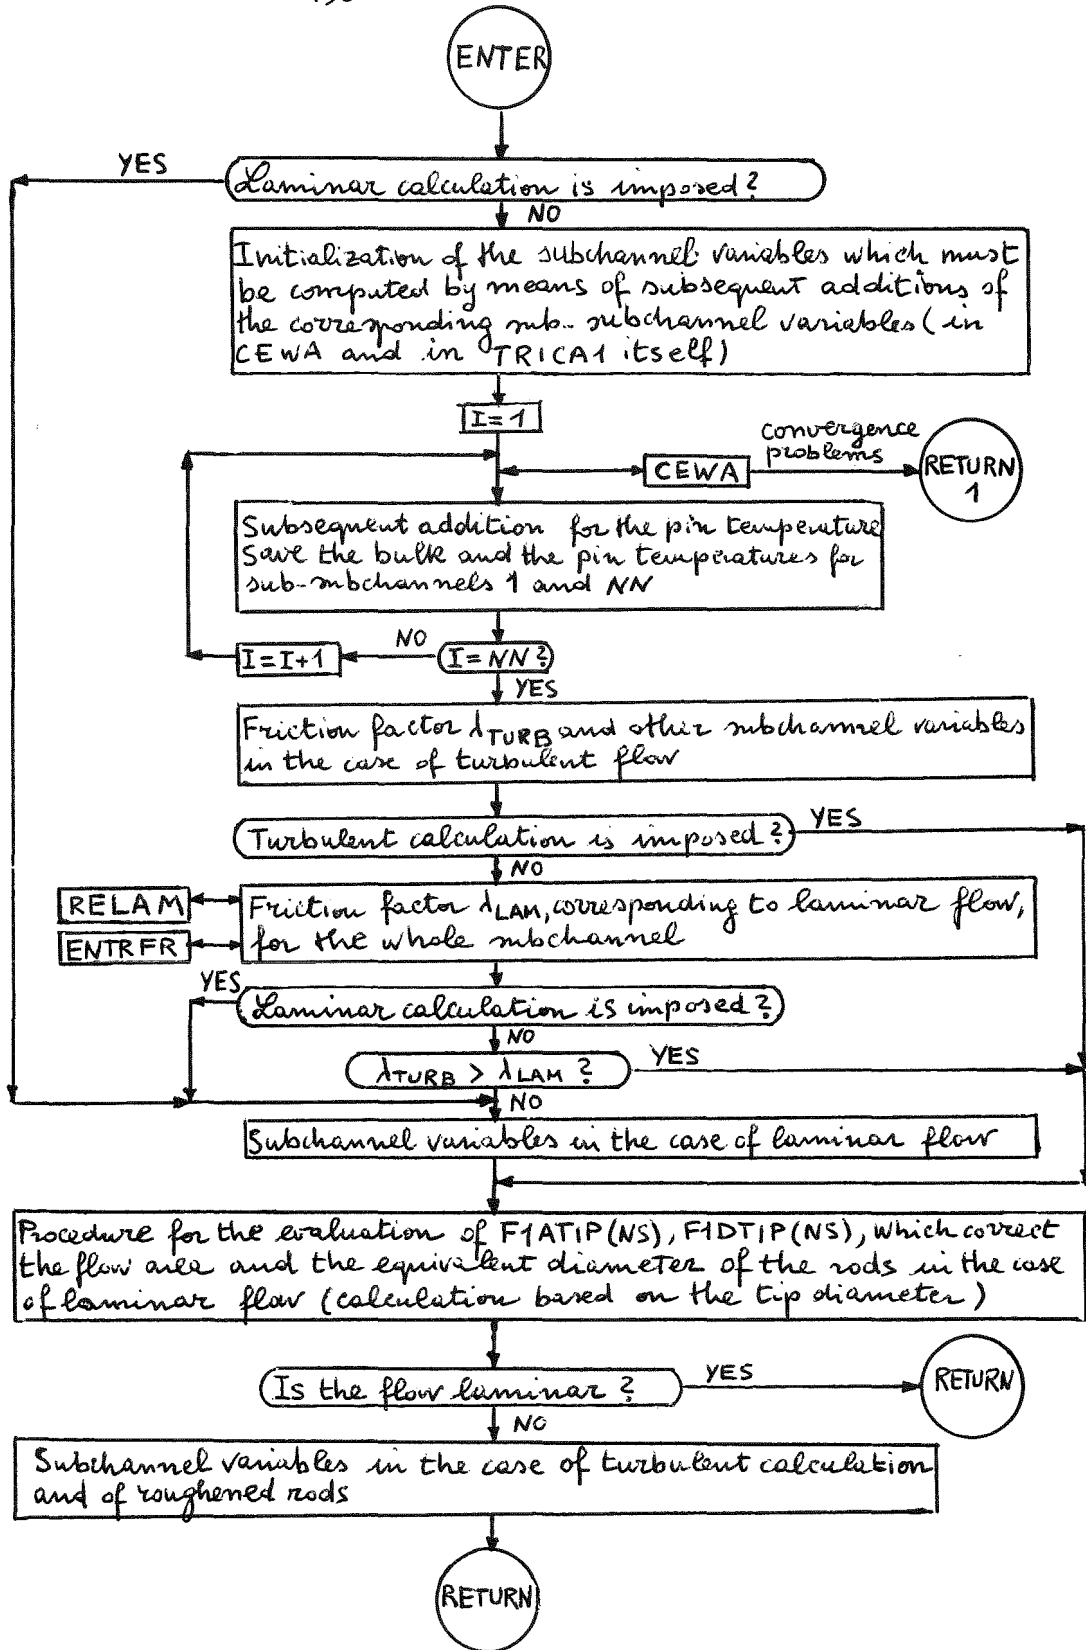 ENTER
YES
Laminar calculation is imposed?
NO
Initialization of the subchannel variables which must
be computed by means of subsequent additions of
the corresponding sub-subchannel variables (in
CEWA and in TRICA1 itself)
I=1
convergence
problems
CEWA
RETURN
1
Subsequent addition for the pin temperature
Save the bulk and the pin temperatures for
sub-subchannels 1 and NN
I=I+1
NO
I=NN?
YES
Friction factor λTURB and other subchannel variables
in the case of turbulent flow
Turbulent calculation is imposed?
YES
NO
RELAM
ENTRFR
Friction factor λLAM, corresponding to laminar flow,
for the whole subchannel
YES
Laminar calculation is imposed?
NO
λTURB > λLAM ?
YES
NO
Subchannel variables in the case of laminar flow
Procedure for the evaluation of F1ATIP(NS), F1DTIP(NS), which correct
the flow area and the equivalent diameter of the rods in the case
of laminar flow (calculation based on the tip diameter)
Is the flow laminar?
YES
RETURN
NO
Subchannel variables in the case of turbulent calculation
and of roughened rods
RETURN